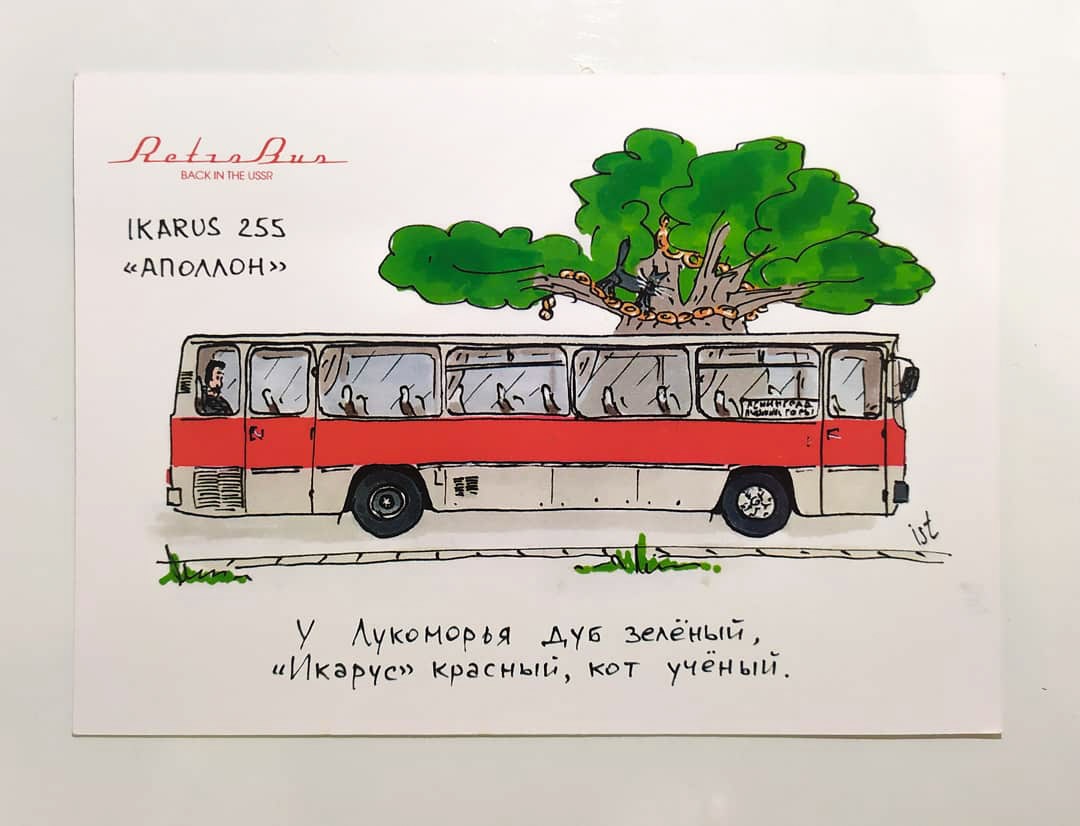 RetroBus
BACK IN THE USSR
IKARUS 255
«АПОЛЛОН»
ЛЕНИНГРАД
ПУШКИН ГОРЫ
ist
У Лукоморья дуб зелёный,
«Икарус» красный, кот учёный.